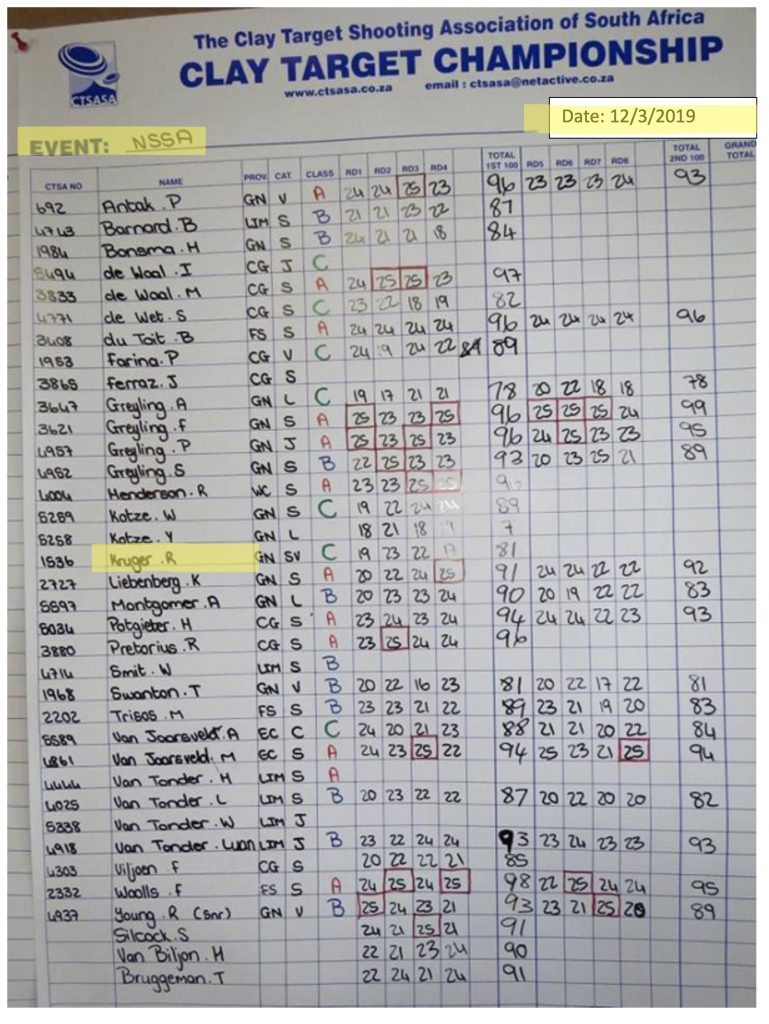 The Clay Target Shooting Association of South Africa
CLAY TARGET CHAMPIONSHIP
www.ctsasa.co.za email : ctsasa@netactive.co.za
CTSASA
Date: 12/3/2019
EVENT: NSSA
CTSA NO NAME PROV. CAT. CLASS RD1 RD2 RD3 RD4 TOTAL 1ST 100 RD5 RD6 RD7 RD8 TOTAL 2ND 100 GRAND TOTAL
692 Antak .P GN V A 24 24 25 23 96 23 23 23 24 93
4743 Barnard .B LIM S B 21 21 23 22 87
1984 Bonsma .H GN S B 24 21 21 18 84
5494 de Waal .I CG J C
3833 de Waal .M CG S A 24 25 25 23 97
4771 de Wet .S CG S C 23 22 18 19 82
3408 du Toit .B FS S A 24 24 24 24 96 24 24 24 24 96
1953 Farina .P CG V C 24 19 24 22 89 89
3865 Ferraz .J CG S
3647 Greyling .A GN L C 19 17 21 21 78 20 22 18 18 78
3621 Greyling .F GN S A 25 23 23 25 96 25 25 25 24 99
4957 Greyling .P GN J A 25 23 25 23 96 24 25 23 23 95
4952 Greyling .S GN S B 22 25 23 23 93 20 23 25 21 89
4004 Henderson .R WC S A 23 23 25
5259 Kotze .W GN S C 19 22 24 89
5258 Kotze .Y GN L 18 21 18
1536 Kruger .R GN SV C 19 23 22 17 81
2727 Liebenberg .K GN S A 20 22 24 25 91 24 24 22 22 92
5597 Montgomer .A GN L B 20 23 23 24 90 20 19 22 22 83
5034 Potgieter .H CG S A 23 24 23 24 94 24 24 22 23 93
3880 Pretorius .R CG S A 23 25 24 24 96
4714 Smit .W LIM S B
1968 Swanton .T GN V B 20 22 16 23 81 20 22 17 22 81
2202 Trisos .M FS S B 23 23 21 22 89 23 21 19 20 83
5589 Van Jaarsveld .A EC C C 24 20 21 23 88 21 21 20 22 84
4861 Van Jaarsveld .M EC S A 24 23 25 22 94 25 23 21 25 94
4444 Van Tonder .H LIM S A
4025 Van Tonder .L LIM S B 20 23 22 22 87 20 22 20 20 82
5338 Van Tonder .W LIM J
4918 Van Tonder .Wan LIM J B 23 22 24 24 93 23 24 23 23 93
4303 Viljoen .F CG S 20 22 22 21 85
2332 Woolls .F FS S A 24 25 24 25 98 22 25 24 24 95
4937 Young .R (Snr) GN V B 25 24 23 21 93 23 21 25 20 89
Silcock .S 24 21 25 21 91
Van Biljon .H 22 21 23 24 90
Bruggeman .T 22 24 21 24 91